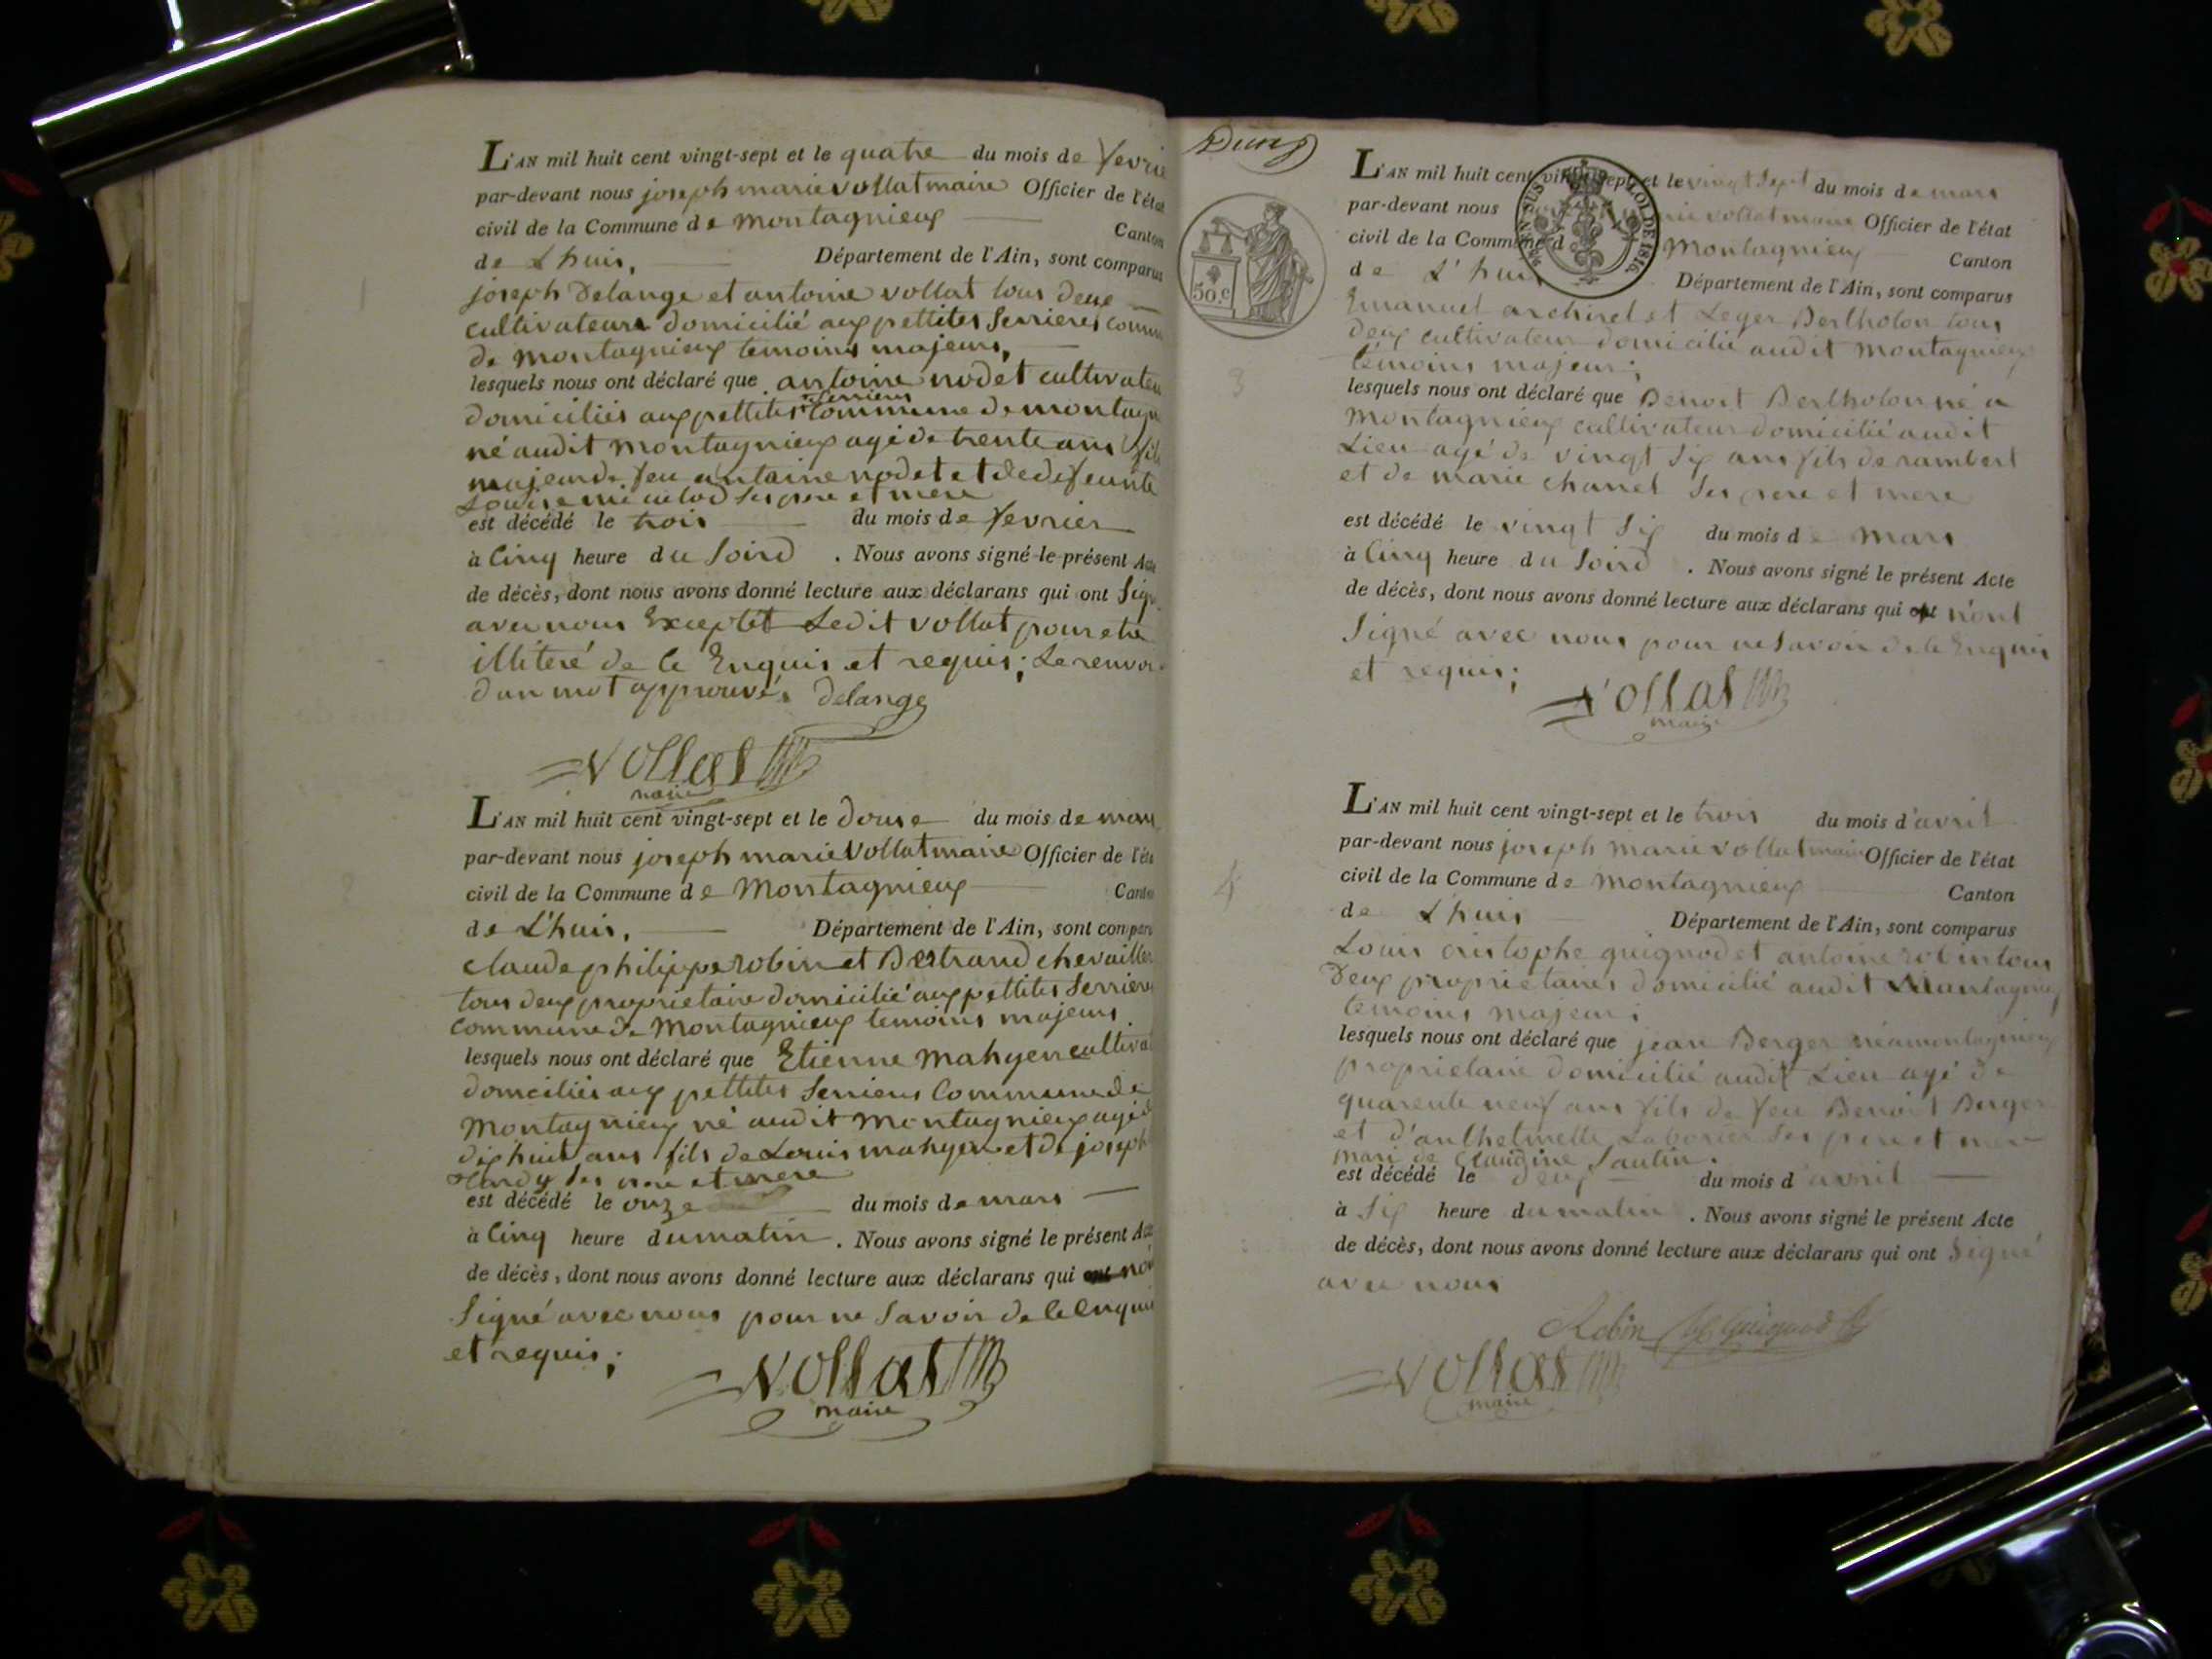 L'AN mil huit cent vingt-sept et le quatre du mois de fevrie
par-devant nous joseph marie vollat maire Officier de l'état
civil de la Commune de Montagnieux Canton
de Lhuis, Département de l'Ain, sont comparus
joseph Delange et antoine vollat tous deux
cultivateurs domicilié aux pettites Serrieres comm
de Montagnieux temoins majeurs,
lesquels nous ont déclaré que antoine nodet cultivateu
Serrieres
domiciliés aux pettites Commune de montagn
né audit Montagnieux agé de trente ans fils
majeur de feu antoine nodet et de defeunte
Louise ses pere et mere
est décédé le trois du mois de fevrier
à Cinq heure du Soird . Nous avons signé le présent Acte
de décès, dont nous avons donné lecture aux déclarans qui ont Sign
avec nous Exceptét Ledit vollat pour etre
illiteré de ce Enquis et requis; Le renvoi
dun mot approuvé. Delange
Vollat
maire
L'AN mil huit cent vingt-sept et le douse du mois de mars
par-devant nous joseph marie Vollat maire Officier de l'éta
civil de la Commune de Montagnieux Canton
de L'huis, Département de l'Ain, sont compar
claude philippe robin et Bertrand chevailler
tous deux proprietaire domicilié aux pettites Serrieres
commune de Montagnieux temoins majeurs
lesquels nous ont déclaré que Etienne mahyer cultiva
domciliés aux pettites Serrieres Commune de
Montagnieux né audit Montagnieux agé d
dix huit ans fils de Louis mahyer et de joseph
Hardy ses pere et mere
est décédé le onze du mois de mars
à Cinq heure du matin . Nous avons signé le présent Acte
de décès, dont nous avons donné lecture aux déclarans qui ont non
Signé avec nous pour ne Savoir de ce Enquis
et requis;
Vollat
maire
Deux
50.c
TIMBRE EN SUS LOI DE 1816.
L'AN mil huit cent vingt-sept et le vingt Sept du mois de mars
par-devant nous joseph marie vollat maire Officier de l'état
civil de la Commune de Montagnieux Canton
de L'huis Département de l'Ain, sont comparus
Emanuel archirel et Leger Bertholon tous
deux cultivateur domicilié audit Montagnieux
témoins majeur;
3
lesquels nous ont déclaré que Benoit Bertholon né a
Montagnieux cultivateur domicilié audit
Lieu agé de vingt Six ans fils de rambert
et de marie chanel Ses pere et mere
est décédé le vingt Six du mois de mars
à Cinq heure du Soird . Nous avons signé le présent Acte
de décès, dont nous avons donné lecture aux déclarans qui ont n'ont
Signé avec nous pour ne Savoir de ce Enquis
et requis;
Vollat
maire
L'AN mil huit cent vingt-sept et le trois du mois d'avril
par-devant nous joseph marie vollat maire Officier de l'état
4
civil de la Commune de Montagnieux Canton
de L'huis Département de l'Ain, sont comparus
Louis cristophe guignod et antoine robin tous
Deux proprietaires domicilié audit Montagnieux
temoins majeur;
lesquels nous ont déclaré que jean Berger né a montagnieux
proprietaire domicilié audit Lieu agé de
quarente neuf ans fils de feu Benoit Berger
et d'anthelmette Ses pere et mere
mari de Claudine Sautin.
est décédé le deux du mois d'avril
à Six heure du matin . Nous avons signé le présent Acte
de décès, dont nous avons donné lecture aux déclarans qui ont Signé
avec nous
Robin Guignod
Vollat
maire